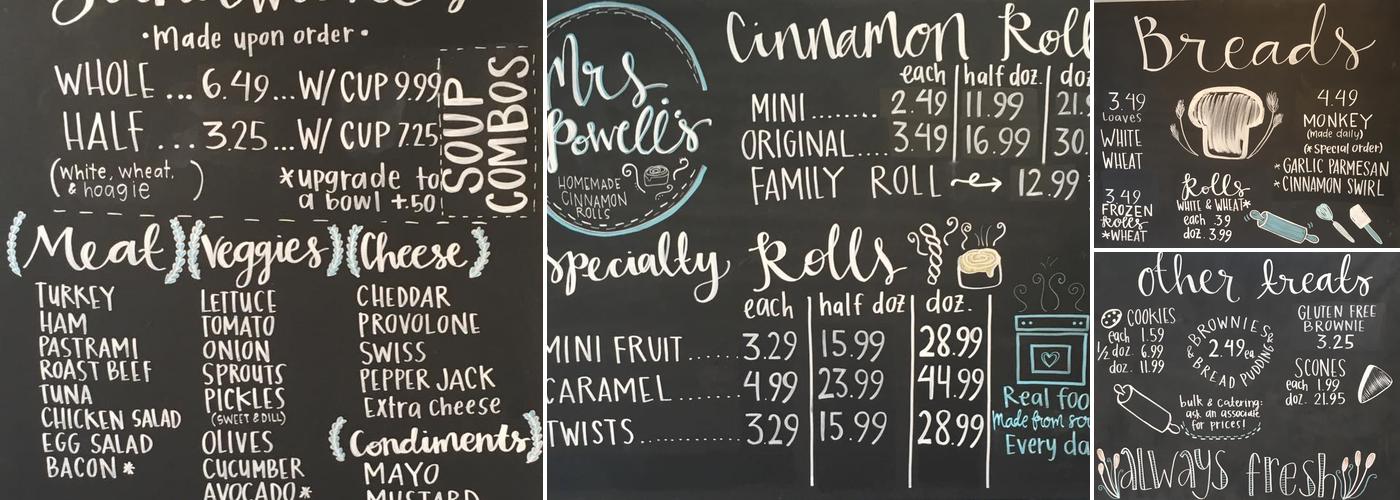 •Made upon order•
WHOLE ... 6.49... W/ CUP 9.99
HALF ... 3.25... W/ CUP 7.25
(white, wheat, & hoagie)
*upgrade to
a bowl +.50
SOUP
COMBOS
(Meat)
TURKEY
HAM
PASTRAMI
ROAST BEEF
TUNA
CHICKEN SALAD
EGG SALAD
BACON *
(Veggies)
LETTUCE
TOMATO
ONION
SPROUTS
PICKLES
(SWEET & DILL)
OLIVES
CUCUMBER
AVOCADO*
(Cheese)
CHEDDAR
PROVOLONE
SWISS
PEPPER JACK
Extra Cheese
(Condiments)
MAYO
MUSTARD
Mrs.
Powell's
HOMEMADE
CINNAMON
ROLLS
Cinnamon Roll
each | half doz. | doz
MINI........ 2.49 | 11.99 | 21.9
ORIGINAL.... 3.49 | 16.99 | 30.
FAMILY ROLL → 12.99
Specialty Rolls
each | half doz | doz.
MINI FRUIT...... 3.29 | 15.99 | 28.99
CARAMEL........ 4.99 | 23.99 | 44.99
TWISTS.......... 3.29 | 15.99 | 28.99
Real foo
Made from scr
Every da
Breads
3.49
Loaves
WHITE
WHEAT
3.49
FROZEN
Rolls
*WHEAT
Rolls
WHITE & WHEAT*
each .39
doz. 3.99
4.49
MONKEY
(made daily)
(*Special order)
*GARLIC PARMESAN
*CINNAMON SWIRL
other treats
COOKIES
each 1.59
1/2 doz. 6.99
doz. 11.99
BROWNIES &
2.49ea
& BREAD PUDDING
GLUTEN FREE
BROWNIE
3.25
SCONES
each 1.99
doz. 21.95
bulk & catering:
ask an associate
for prices!
always fresh